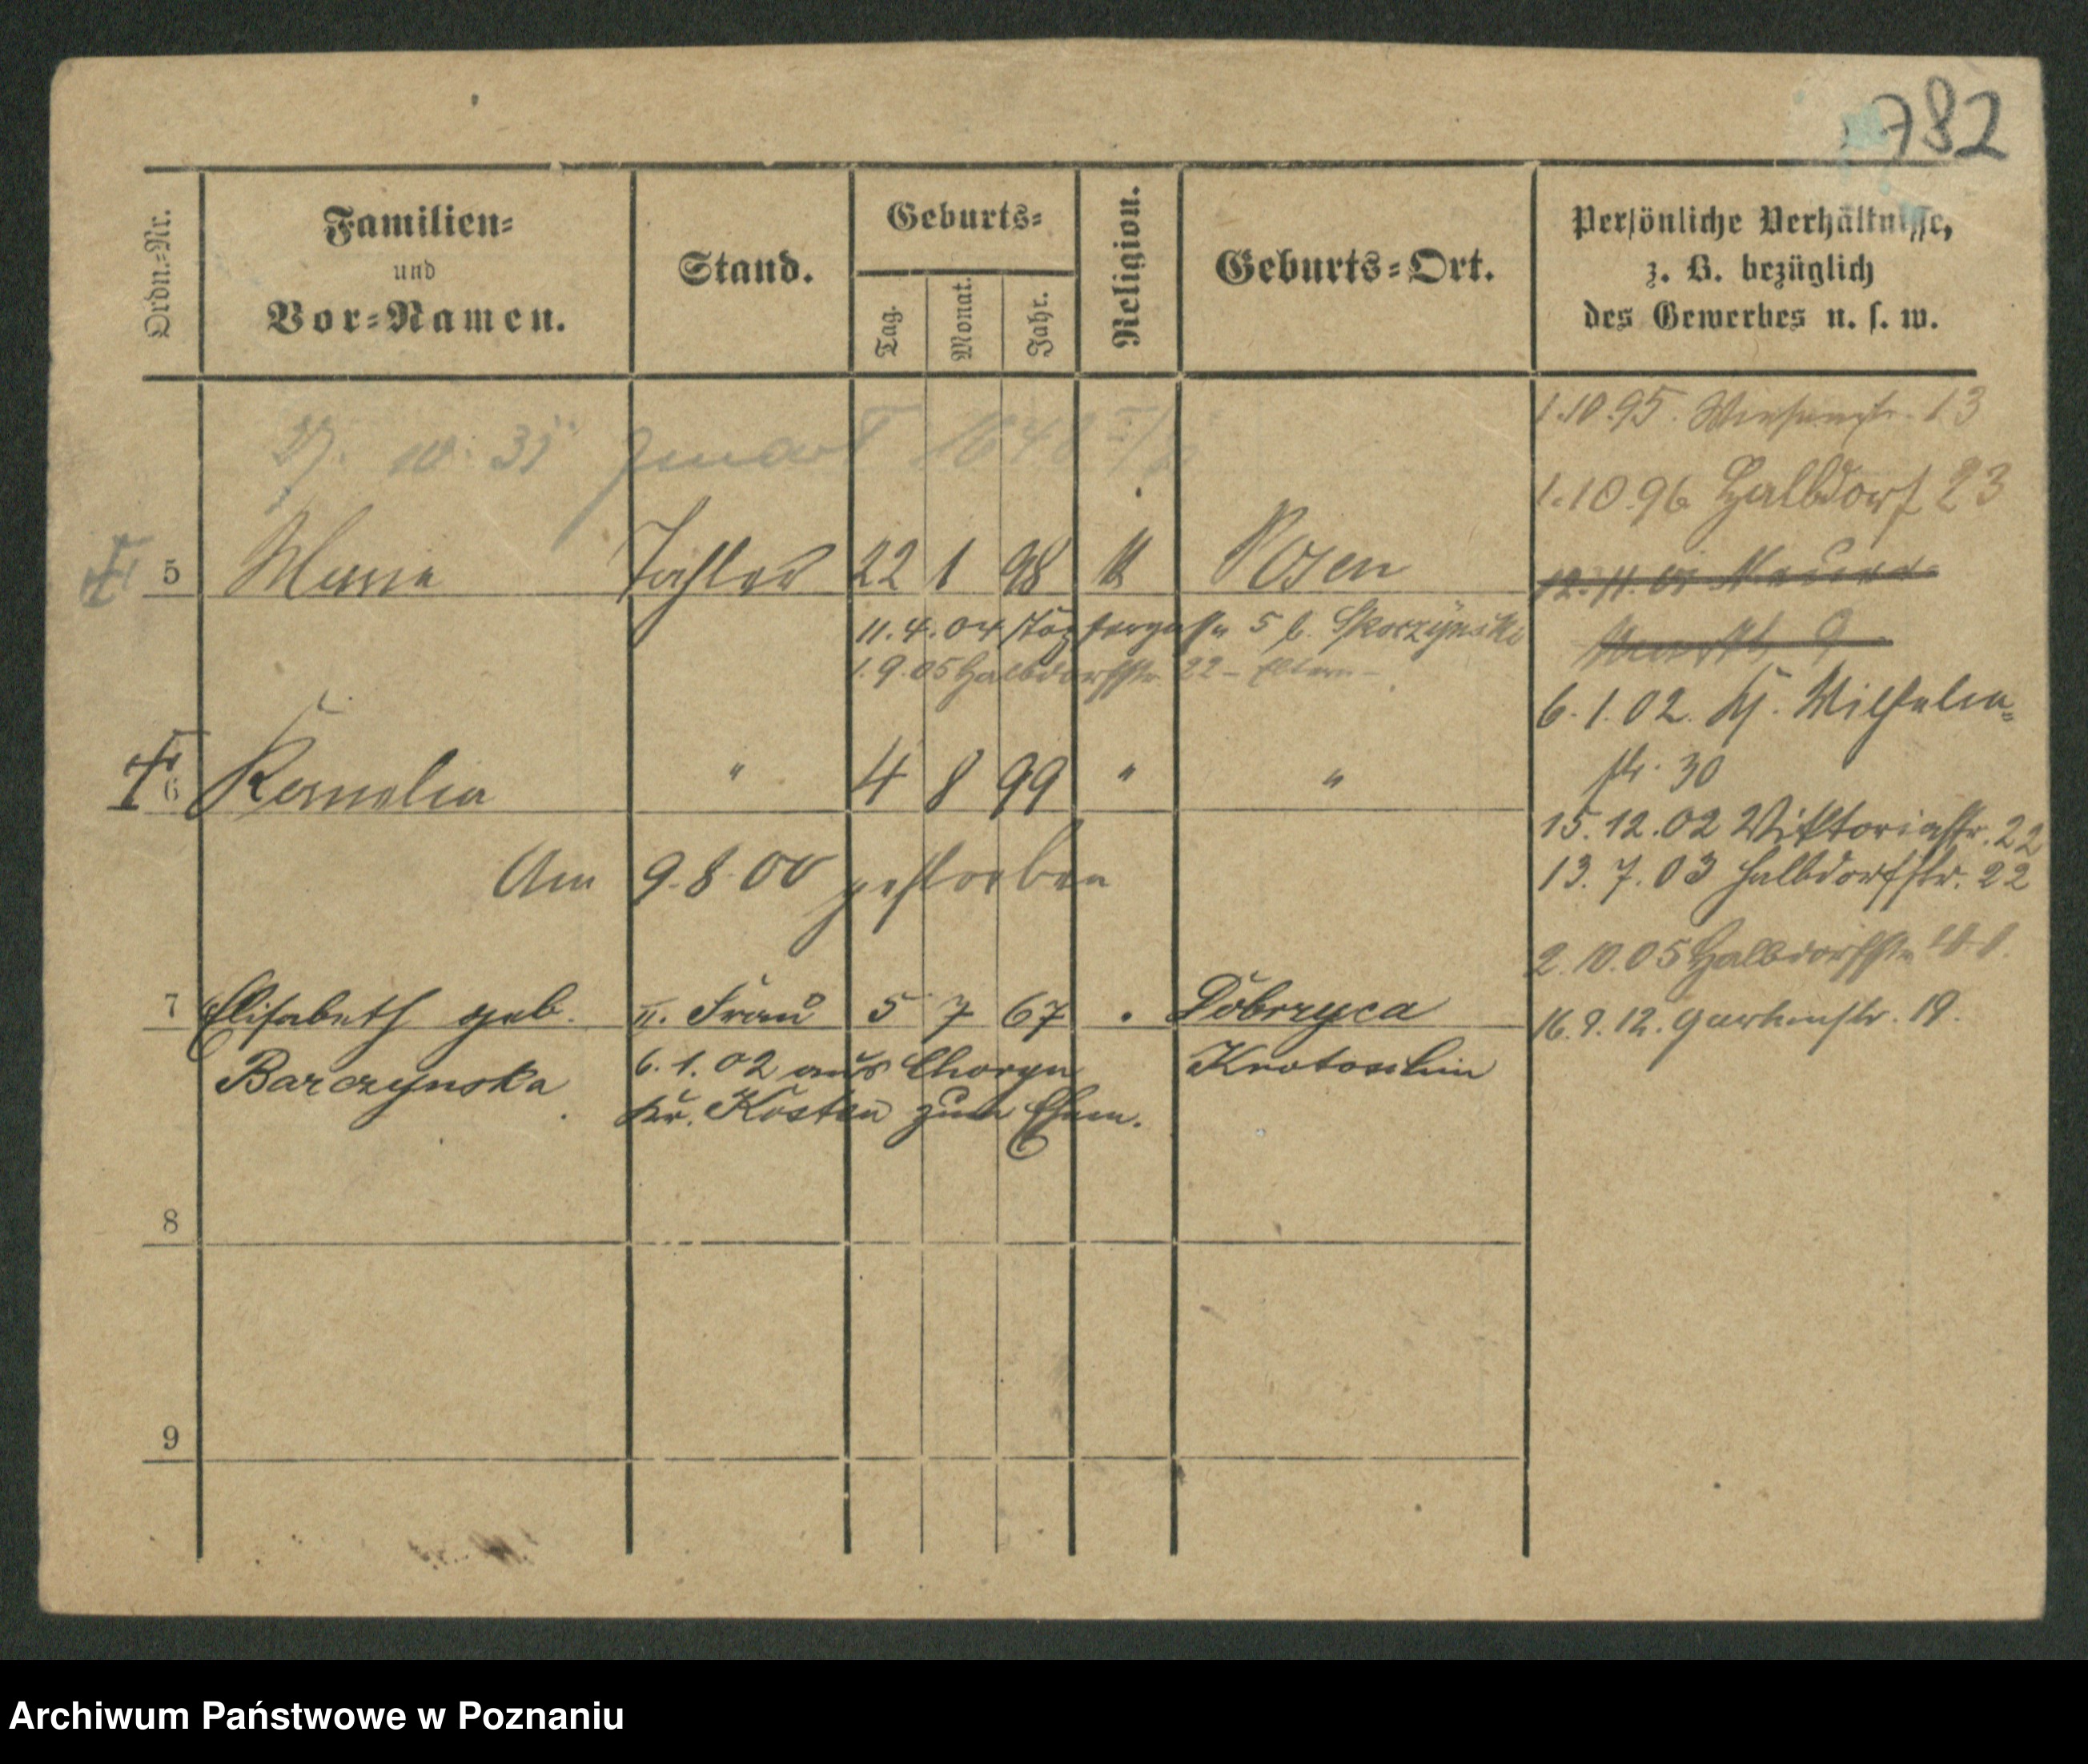 782
Ordn.-Nr.
Familien-
und
Vor-Namen.
Stand.
Geburts-
Tag.
Monat.
Jahr.
Religion.
Geburts-Ort.
Persönliche Verhältnisse,
z. B. bezüglich
des Gewerbes u. s. w.
1.10.95. 13
1.10.96 Halbdorf 23
5 Maria Tochter 22 1 98 k Posen
11.4.04 5 b. Skoczynski
1.9.05 Halbdorfstr. 22 - Eltern -
6.1.02. Kg. Wilhelm-
str. 30
6 Kornelia " 4 8 99 " "
15.12.02 Viktoriastr. 22
Am 9.8.00 gestorben
13.7.03 Halbdorfstr. 22
2.10.05 Halbdorfstr.
7 Elisabeth geb. II. Frau 5 7 67 . Dobrzyca
16.9.12. Gartenstr. 19.
Barczynska
6.1.02 aus Choryn
Krotoschin
Kr. Kosten zum Ehem.
8
9
Archiwum Państwowe w Poznaniu